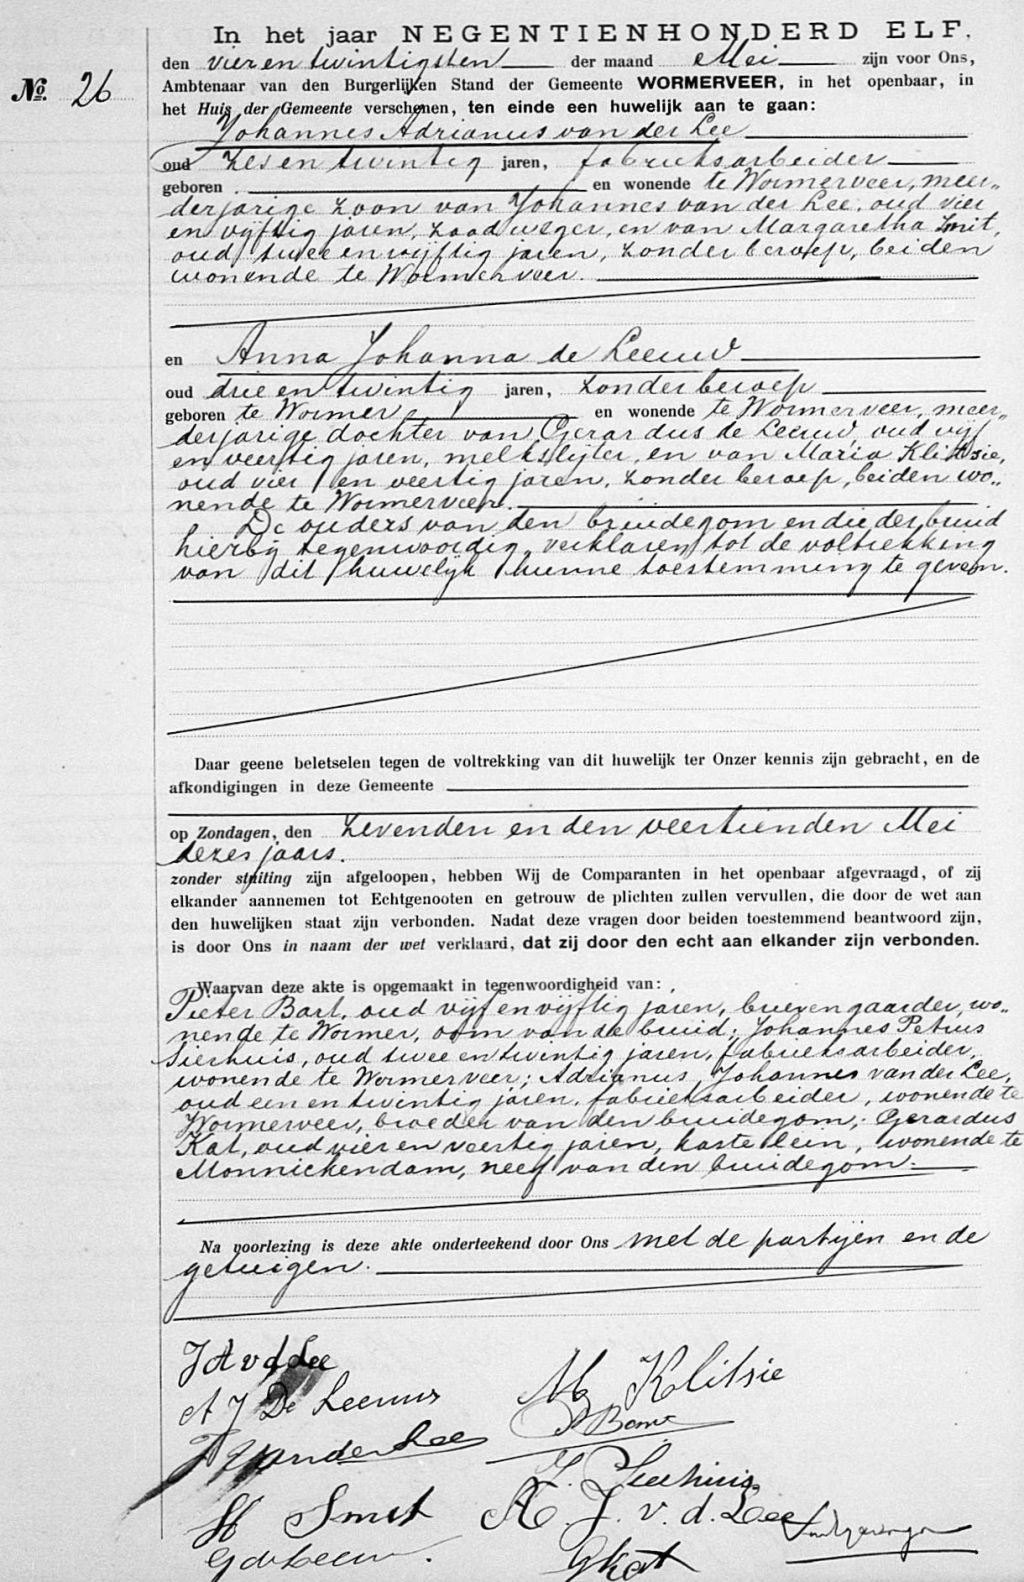 In het jaar NEGENTIENHONDERD ELF,
den vier en twintigsten der maand Mei zijn voor Ons,
Ambtenaar van den Burgerlijken Stand der Gemeente WORMERVEER, in het openbaar, in
No. 26
het Huis der Gemeente verschenen, ten einde een huwelijk aan te gaan:
Johannes Adrianus van der Lee
oud zes en twintig jaren, fabrieksarbeider
geboren en wonende te Wormerveer, meer„
derjarige zoon van Johannes van der Lee, oud vier
en vijftig jaren, zaadweger, en van Margaretha Smit,
oud twee en vijftig jaren, zonder beroep, beiden
wonende te Wormerveer.
en Anna Johanna de Leeuw
oud drie en twintig jaren, zonder beroep
geboren te Wormer en wonende te Wormerveer, meer„
derjarige dochter van Gerardus de Leeuw, oud vijf
en veertig jaren, melkslijter, en van Maria Klitsie,
oud vier en veertig jaren, zonder beroep, beiden wo„
nende te Wormerveer.
De ouders van den bruidegom en die der bruid
hierbij tegenwoordig, verklaren tot de voltrekking
van dit huwelijk hunne toestemming te geven.
Daar geene beletselen tegen de voltrekking van dit huwelijk ter Onzer kennis zijn gebracht, en de
afkondigingen in deze Gemeente
op Zondagen, den zevenden en den veertienden Mei
dezes jaars.
zonder stuiting zijn afgeloopen, hebben Wij de Comparanten in het openbaar afgevraagd, of zij
elkander aannemen tot Echtgenooten en getrouw de plichten zullen vervullen, die door de wet aan
den huwelijken staat zijn verbonden. Nadat deze vragen door beiden toestemmend beantwoord zijn,
is door Ons in naam der wet verklaard, dat zij door den echt aan elkander zijn verbonden.
Waarvan deze akte is opgemaakt in tegenwoordigheid van:
Pieter Bart, oud vijf en vijftig jaren, brievengaarder, wo„
nende te Wormer, oom van de bruid; Johannes Petrus
Sierhuis, oud twee en twintig jaren, fabrieksarbeider,
wonende te Wormerveer; Adrianus Johannes van der Lee,
oud een en twintig jaren, fabrieksarbeider, wonende te
Wormerveer, broeder van den bruidegom; Gerardus
Kat, oud vier en veertig jaren, kastelein, wonende te
Monnickendam, neef van den bruidegom.
Na voorlezing is deze akte onderteekend door Ons met de partijen en de
getuigen.
J A v d Lee
M Klitsie
A J De Leeuw
van der Lee
J. Sierhuis
M Smit
A. J. v. d. Lee
G de Leeuw.
G Kat